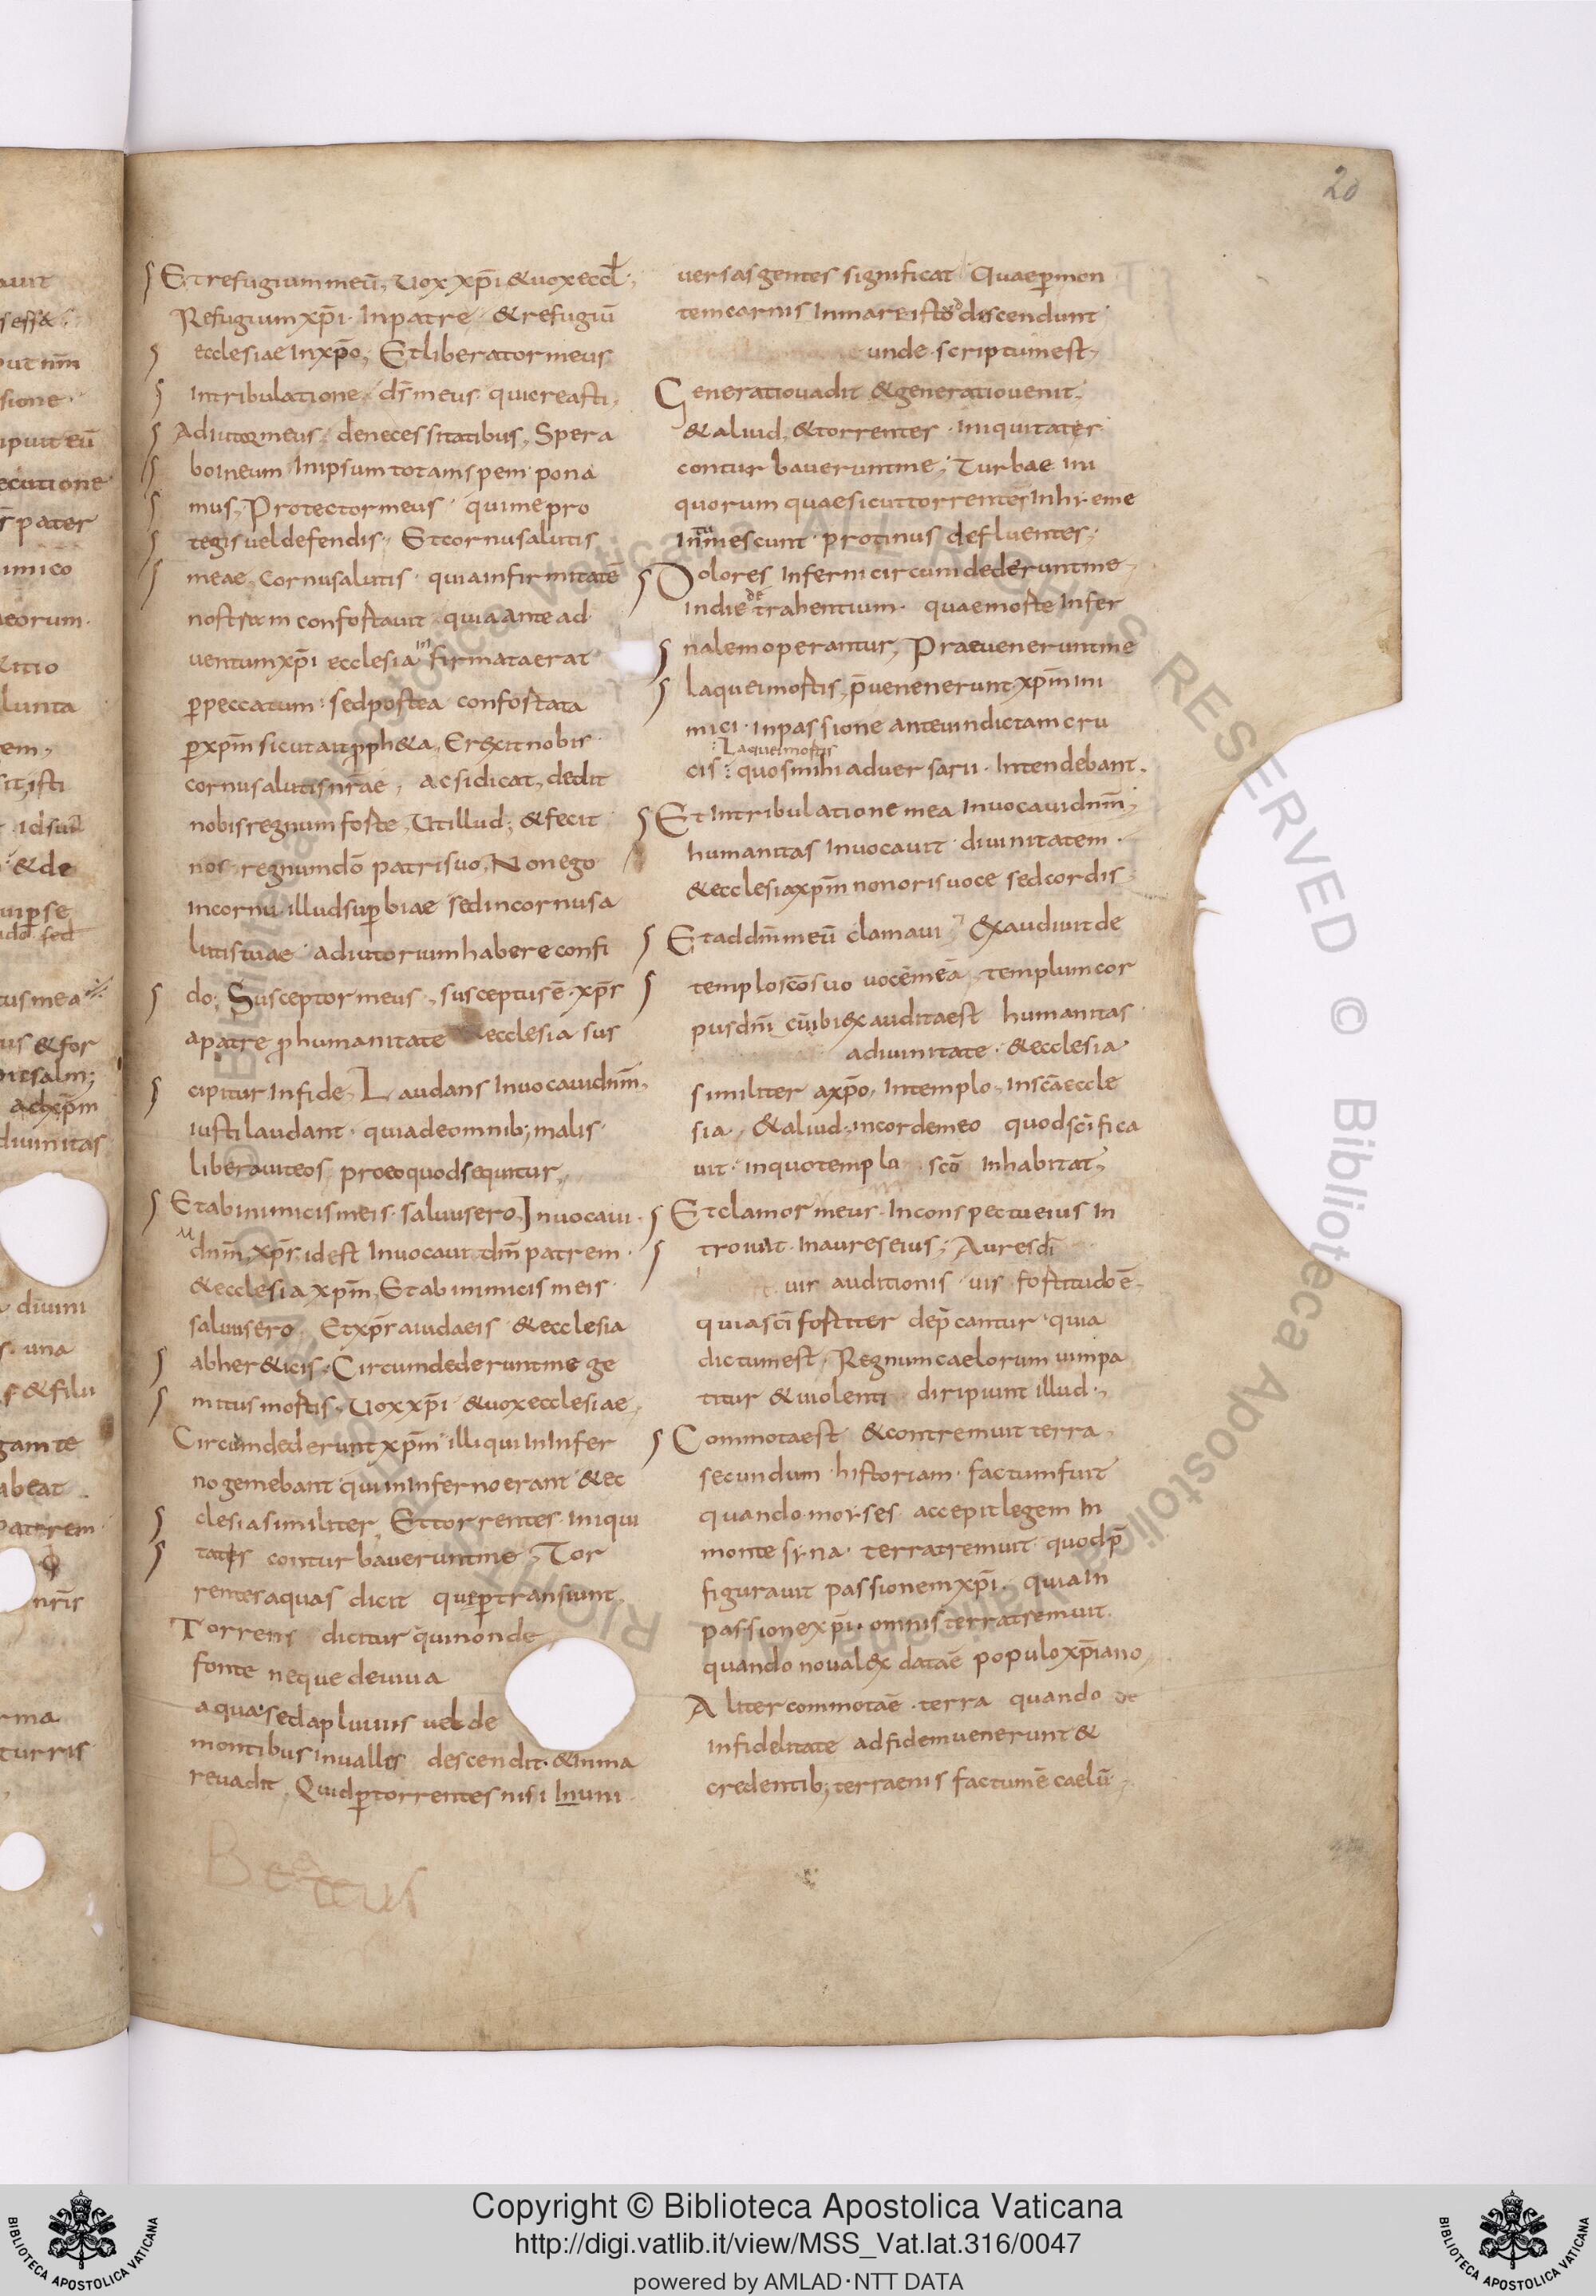 20
Et refugium meū, Uox xp̄i & uox eccl̄,
Refugium xp̄i · In patre · & refugiū
ecclesiae In xp̄o, Et liberator meus
In tribulatione · d̄s meus qui creasti,
Adiutor meus, de necessitatibus, Spera
bo In eum In ipsum totam spem pona
mus, Protector meus · qui me pro
tegis uel defendis, Et cornu salutis
meae, Cornu salutis · quia infirmitatē
nostram confortauit · quia ante ad
uentum xp̄i ecclesia infirmata erat
p̱ peccatum · sed postea confortata
p̱ xp̄m sicut ait pph&a, Erexit nobis
cornu salutis nr̄ae, ac si dicat, dedit
nobis regnum forte, Ut illud; & fecit
nos regnum dō patri suo, Non ego
In cornu illud sup̱biae sed in cornu sa
lutis tuae adiutorium habere confi
do; Susceptor meus, susceptus ē · xp̄s
a patre p humanitate ecclesia sus
cipitur In fide, Laudans Inuocaui dn̄m,
iusti laudant · quia de omnib; malis
liberauit eos pro eo quod sequitur,
Et ab inimicis meis · saluus ero, Inuocaui
dn̄m, xp̄s, id est Inuocaui dm̄ patrem ·
& ecclesia xp̄m, Et ab inimicis meis
saluus ero, Et xp̄s a iudaeis & ecclesia
ab her&icis · Circumdederunt me ge
mitus mortis, Uox xp̄i & uox ecclesiae,
Circumdederunt xp̄m illi qui In Infer
no gemebant qui in Inferno erant & ec
clesia similiter, Et torrentes · Iniqui
tatis conturbauerunt me, Tor
rentes aquas dicit que p̱transiunt,
Torrens dicitur qui non de
fonte neque de uiua
aqua sed a pluuiis uel de
montibus in ualles descendit · & In ma
re uadit, Quid p̱ torrentes nisi In uni
uersas gentes significat Quae p̱ mon
tem carnis In mare isto discendunt
unde · scriptum est,
Generatio uadit & generatio uenit,
& aliud, & torrentes · Iniquitates
conturbauerunt me, Turbae Ini
quorum quae sicut torrentes In hieme
Intumescunt · protinus defluentes,
Dolores Inferni circumdederunt me,
In die detrahentium · quae morte Infer
nalem operantur, Praeuenerunt me
laquei mortis, p̄uenenerunt xp̄m Ini
mici · In passione ante uindictam cru
Laquei mortis
cis quos mihi aduersarii · Intendebant,
Et In tribulatione mea Inuocaui dn̄m,
humanitas Inuocauit diuinitatem ·
& ecclesia xp̄m non oris uoce sed cordis
Et ad dm̄ meū clamaui, Exaudiuit de
templo sc̄o suo uocē meā, templum cor
pus dn̄i cū ibi exaudita est humanitas
a diuinitate · & ecclesia
similiter a xp̄o, In templo, In sc̄a eccle
sia, & aliud · in corde meo quod sc̄ifica
uit · in quo templo sc̄o Inhabitat,
Et clamor meus · In conspectu eius In
troiuit · In aures eius, Aures dī
uis auditionis uis fortitudo ē,
quia sc̄i fortiter dep̄cantur quia
dictum est, Regnum caelorum uim pa
titur & uiolenti diripiunt illud,
Commota est & contremuit terra,
secundum historiam · factum fuit
quando moyses accepit legem In
monte syna · terra tremuit quod p̄
figurauit passionem xp̄i · quia In
passione xp̄i · omnis terra tremuit
quando noua lex data ē populo xp̄iano,
Aliter commota ē · terra quando de
Infidelitate ad fidem uenerunt &
credentib; terraenis factum ē caelū,
Beatus
Copyright © Biblioteca Apostolica Vaticana
http://digi.vatlib.it/view/MSS_Vat.lat.316/0047
powered by AMLAD·NTT DATA
BIBLIOTECA APOSTOLICA VATICANA
BIBLIOTECA APOSTOLICA VATICANA